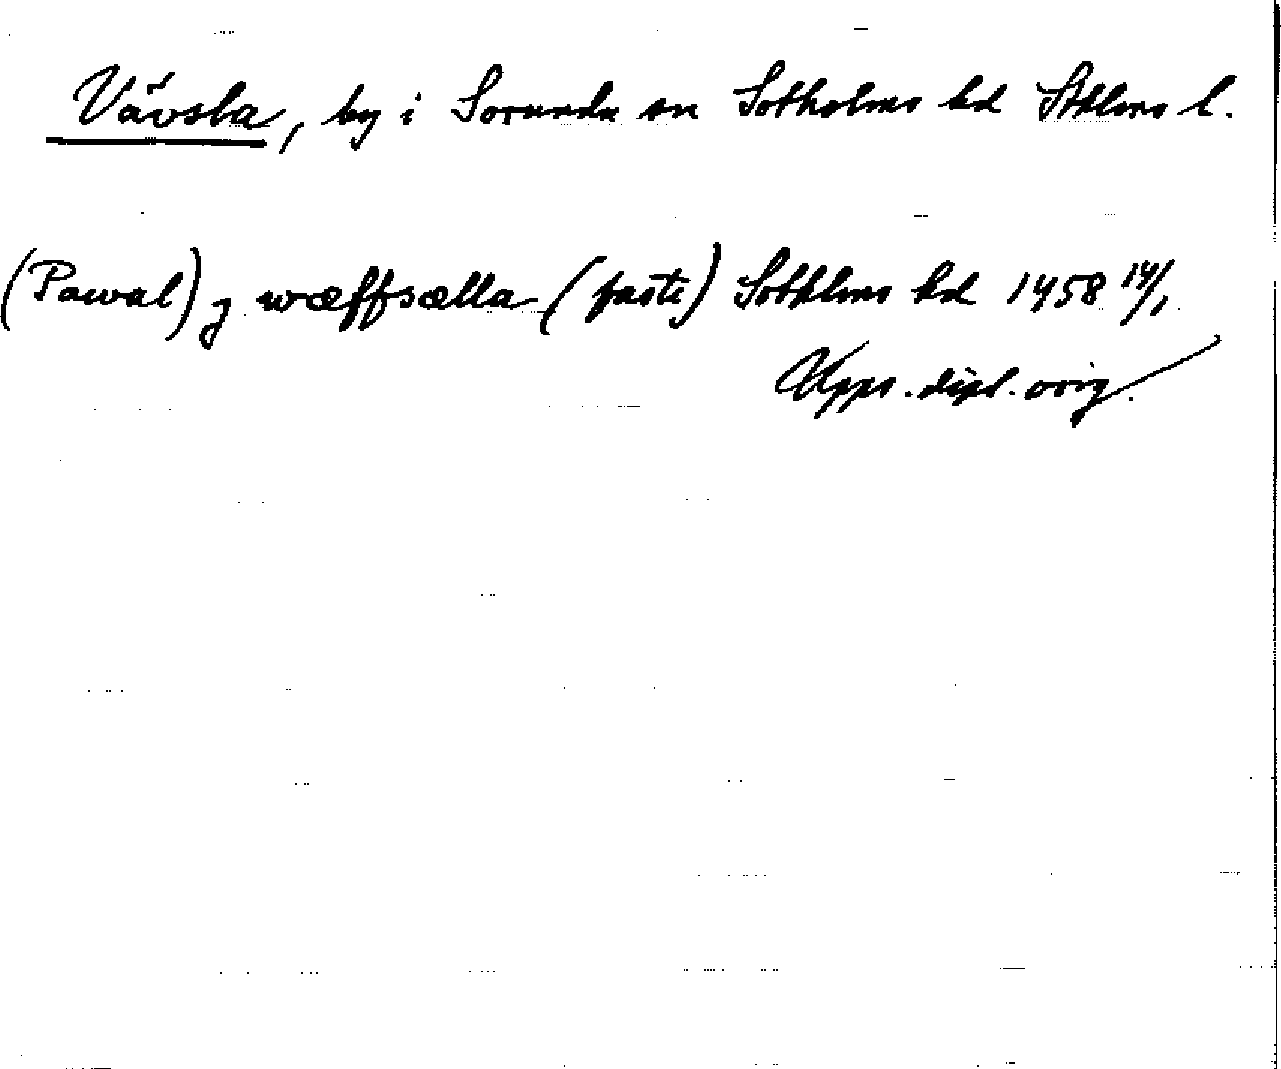 Vävsla, by i Sorunda sn Sotholms hd Sthlms l.
(Pawal) j wæffsælla (faste) Sothlms hd 1458 14/1
Upps. dipl. orig.